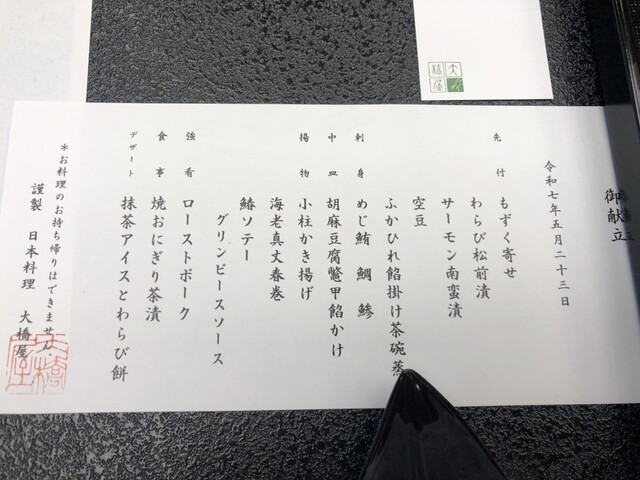 御献立
令和七年五月二十三日
先付 もずく寄せ
わらび松前漬
サーモン南蛮漬
空豆
ふかひれ餡掛け茶碗蒸
刺身 めじ鮪 鯛 鯵
中皿 胡麻豆腐鼈甲餡かけ
揚物 小柱かき揚げ
海老真丈春巻
鰆ソテー
グリンピースソース
強肴 ローストポーク
食事 焼おにぎり茶漬
デザート 抹茶アイスとわらび餅
*お料理のお持ち帰りはできません。
謹製 日本料理 大橋屋
大橋屋
大橋屋